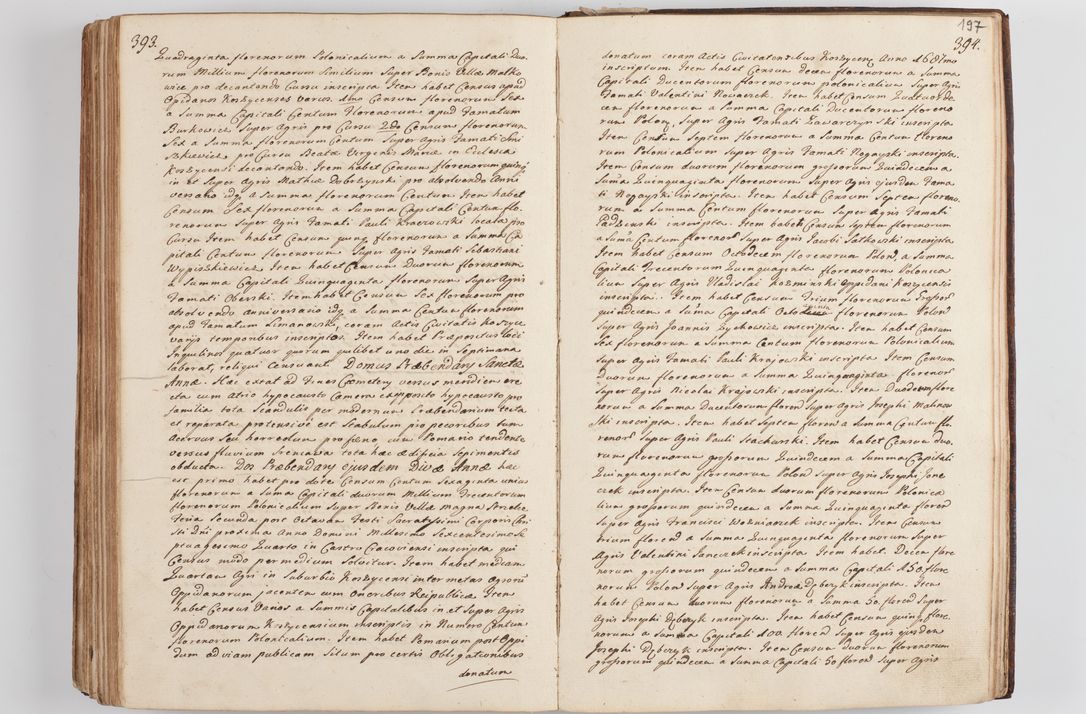 393.
Quadraginta florenorum Polonicalium a Summa Capitali Duo-
rum Millium florenorum Similium Super Bonis Villæ Malko
wice pro decantando Cursu inscripta Item habet Census apud
Oppidanos Koszycenses varios. 1mo Censum florenorum Sex
a Summa Capitali Centum florenorum apud Famatum
Burkowicz Super Agris pro Cursu 2do Censum florenorum
Sex a Summa florenorum Centum Super Agris Famati
Szkiewicz pro Cursu Beatæ Virginis Mariæ in Ecclesia
Koszycensi decantando. Item habet Censum florenorum quinq
in et Super Agris Mathiæ Dobrzynski pro absolvendo Anni
versario idq a Summa florenorum Centum Item habet
Censum Sex florenorum a Summa Capitali Centum flo-
renorum Super Agris Famati Pauli Kraiewski locata pro
Cursu Item habet Censum quinq florenorum a Summa Ca
pitali Centum florenorum Super Agris Famati Sebastiani
Wypiszkiewicz Item habet Censum Duorum florenorum
a Summa Capitali Quinquaginta florenorum Super Agris
Famati Oberski. Item habet Censum Sex florenorum pro
absolvendo anniversario idq a Summa Centum florenorum
apud Famatum Limanowski, coram Actis Civitatis Koszyce
varijs temporibus inscriptos Item habet Præpositus loci
Inquilinos quatuor quorum quilibet uno die in Septimana
laborat, reliqui Censuant. Domus Præbendary Sanctæ
Annæ. Hæc extat ad Fines Cæmetery versus meridiem ere
cta cum Atrio hypocausto Camera exopposito hypocausto pro
familia tota Scandulis per modernum Præbendarium tecta
et reparata protensivè est Stabulum pro pecoribus tum
Acervus Seu horreolum pro fæno cum Pomario tendente
versus fluvium Sreniawa tota hæc ædificia Sepimentis
obducta Dos Præbendary ejusdem Divæ Annæ hæc
est primo habet pro dote Censum Centum Sexaginta unius
florenorum a Suma Capitali duorum Millium Trecentorum
florenorum Polonicalium Super Bonis Villæ magna
Feria Secunda post Octavam Festi Sacratissimi Corporis Chri
sti Dni proxima Anno Domini Millesimo Sexcentesimo Se
ptuagesimo Quarto in Castro Cracoviensi inscripta qui
Census modo per medium Solvitur. Item habet mediam
Quartam Agri in Suburbio Koszycensi inter metas Agrorū
Oppidanorum jacentem cum Oneribus Reipublicæ Item
habet Census Varios a Summis Capitalibus in et Super Agris
Oppidanorum Koszycensium inscriptis in Numero Centum
florenorum Polonicalium. Item habet Pomarium post Oppi
dum ad viam publicam Situm pro certis Obligationibus
donatum

197
394.
donatum coram Actis Civitatensibus Koszycen Anno
inscriptum. Item habet Censum decem florenorum a Summa
Capitali Ducentorum florenorum polonicalium Super Agris
Famati Valentini Nowaczek. Item habet Censum Quatuorde
cem florenorum a Summa Capitali Ducentorum floreno
rum Polon Super Agris Famati Zawarczynski inscripta.
Item Censum Septem florenorum a Summa Centum floreno
rum Polonicalium Super Agris Famati Nogayski inscripta.
Item Censum duorum florenorum grossorum Quindecem a
Sum̃a Quinquaginta florenorum Super Agris ejusdem Fama
ti Nogayski inscripta. Item habet Censum Septem floreno
rum a Summa Centum florenorum Super Agris Famati
Padzinski inscripta. Item habet Censum Septem florenorum
a Sum̃a Centum florenorũ Super Agris Jacobi Satkowski inscripta
Item habet Censum Octodecem florenorum Polon, a Summa
Capitali Trecentorum Quinquaginta florenorum Polonica
lium Super Agris Vladislai Kozminski Oppidani Koszycensis
inscripta. Item habet Censum Trium florenorum Grossorũ
quindecem a Suma Capitali Octo ginta florenorum Polon
Super Agris Joannis Zychowicz inscripta. Item habet Censum
Sex florenorum a Summa Centum florenorum Polonicalium
Super Agris Famati Pauli Krajewski inscripta Item Censum
Duorum florenorum a Summa Quinquaginta florenorũ
Super Agris Nicolai Krajewski inscripta. Item Duodecim flore
norum a Summa Ducentorum floren Super Agris Josephi Malinow
ski inscripta. Item habet Septem floren a Summa Centum flo
renorũ Super Agris Pauli Stachurski. Item habet Censum Duo-
rum florenorum grossorum Quindecem a Summa Capitali
Quinquaginta florenorum Polon Super Agris Josephi Jane
czek inscripta. Item Censum duorum florenorum Polonica
lium grossorum quindecem a Summa Quinquaginta floren
Super Agris Francisci Wozniaczek inscripta. Item Censum
trium floren a Summa Quinquaginta florenorum Super
Agris Valentini Janczek inscripta Item habet Decem flore
norum grossorum quindecem a Summa Capitali 150. flore
norum Polon Super Agris Andreæ Dęberzyk inscripta. Item
habet Censum duorum florenorum a Summa 50. floren Super
Agris Josephi Dęberzyk inscripta. Item habet Censum quinq flore
norum a Summa Capitali 100. floren Super Agris ejusdem
Josephi Dęberzyk inscripta. Item Censum Duorum florenorum
grossorum quindecem a Summa Capitali 50 floren Super Agris